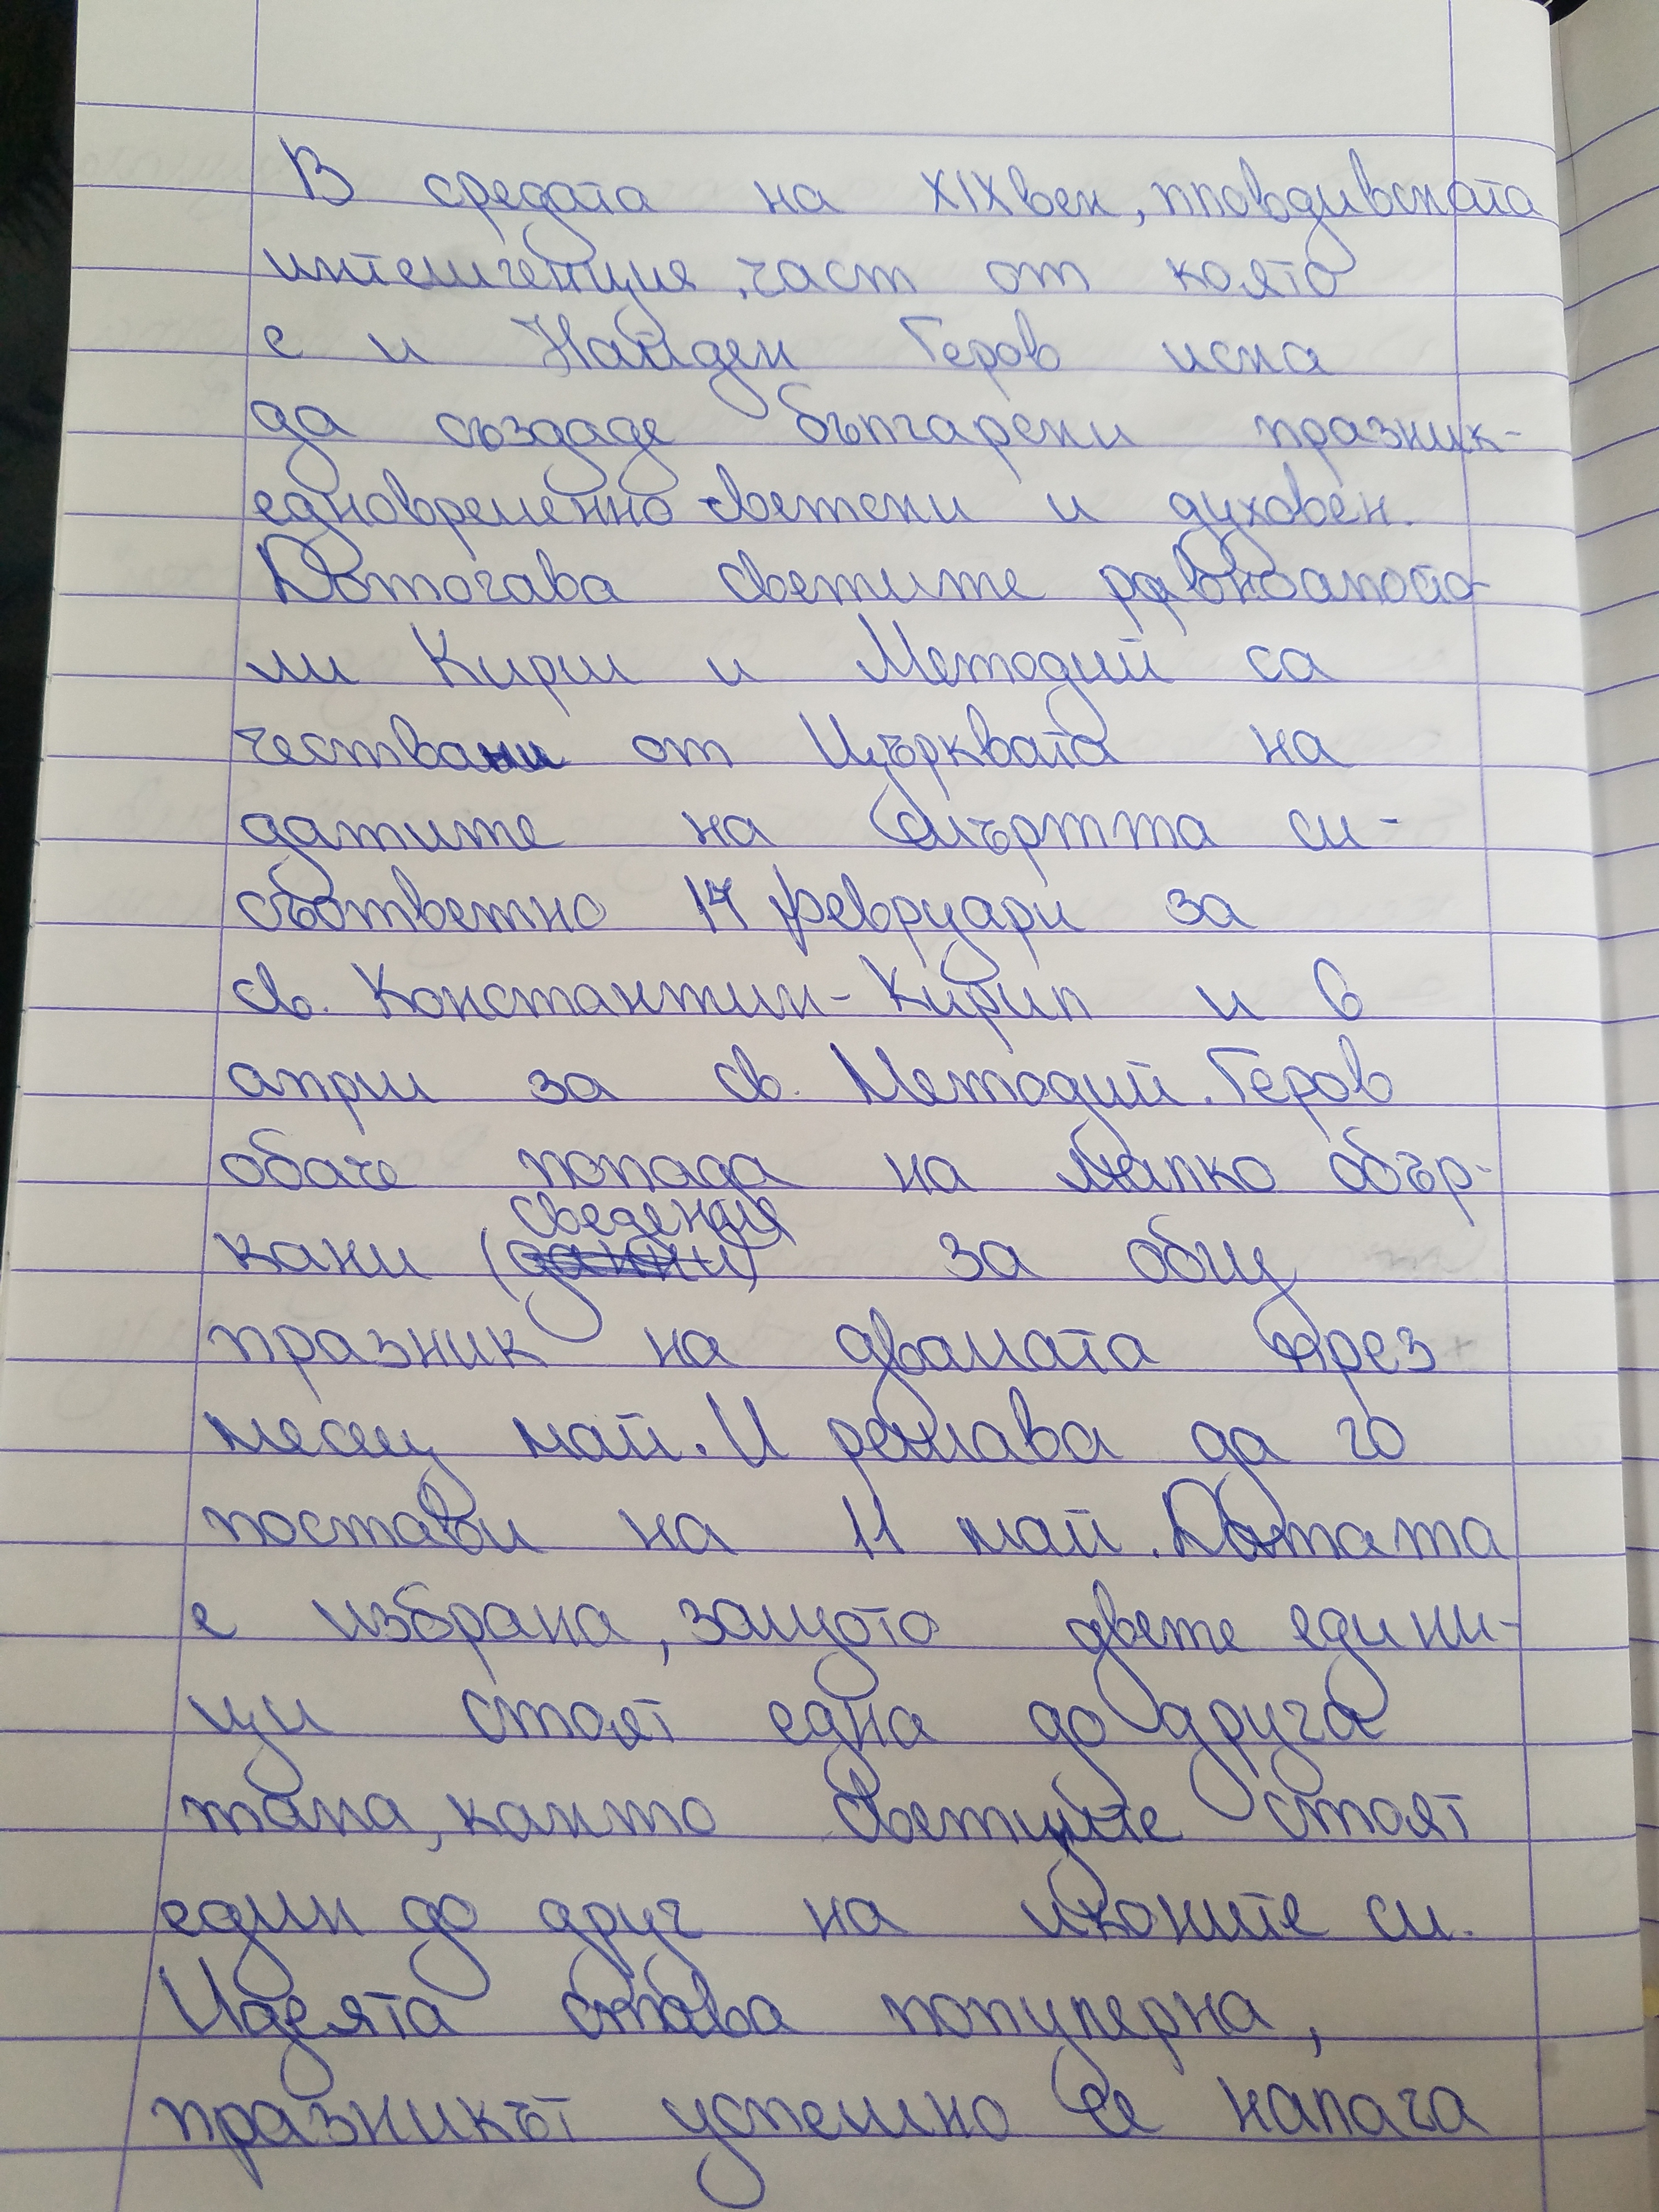 В средата на XIX век, пловдивската
интелигенция, част от която
е и Найден Геров иска
да създаде български празник-
едновременно светски и духовен.
Дотогава светите равноапосто-
ли Кирил и Методий са
чествани от Църквата на
датите на смъртта си -
съответно 14 февруари за
св. Константин-Кирил и 6
април за св. Методий. Геров
обаче попада на малко обър-
кани (сведения) за общ
празник на двамата през
месец май. И решава да го
постави на 11 май. Датата
е избрана, защото двете едини-
ци стоят една до друга
така, както светците стоят
един до друг на иконите си.
Идеята става популерна,
празникът успешно се налага